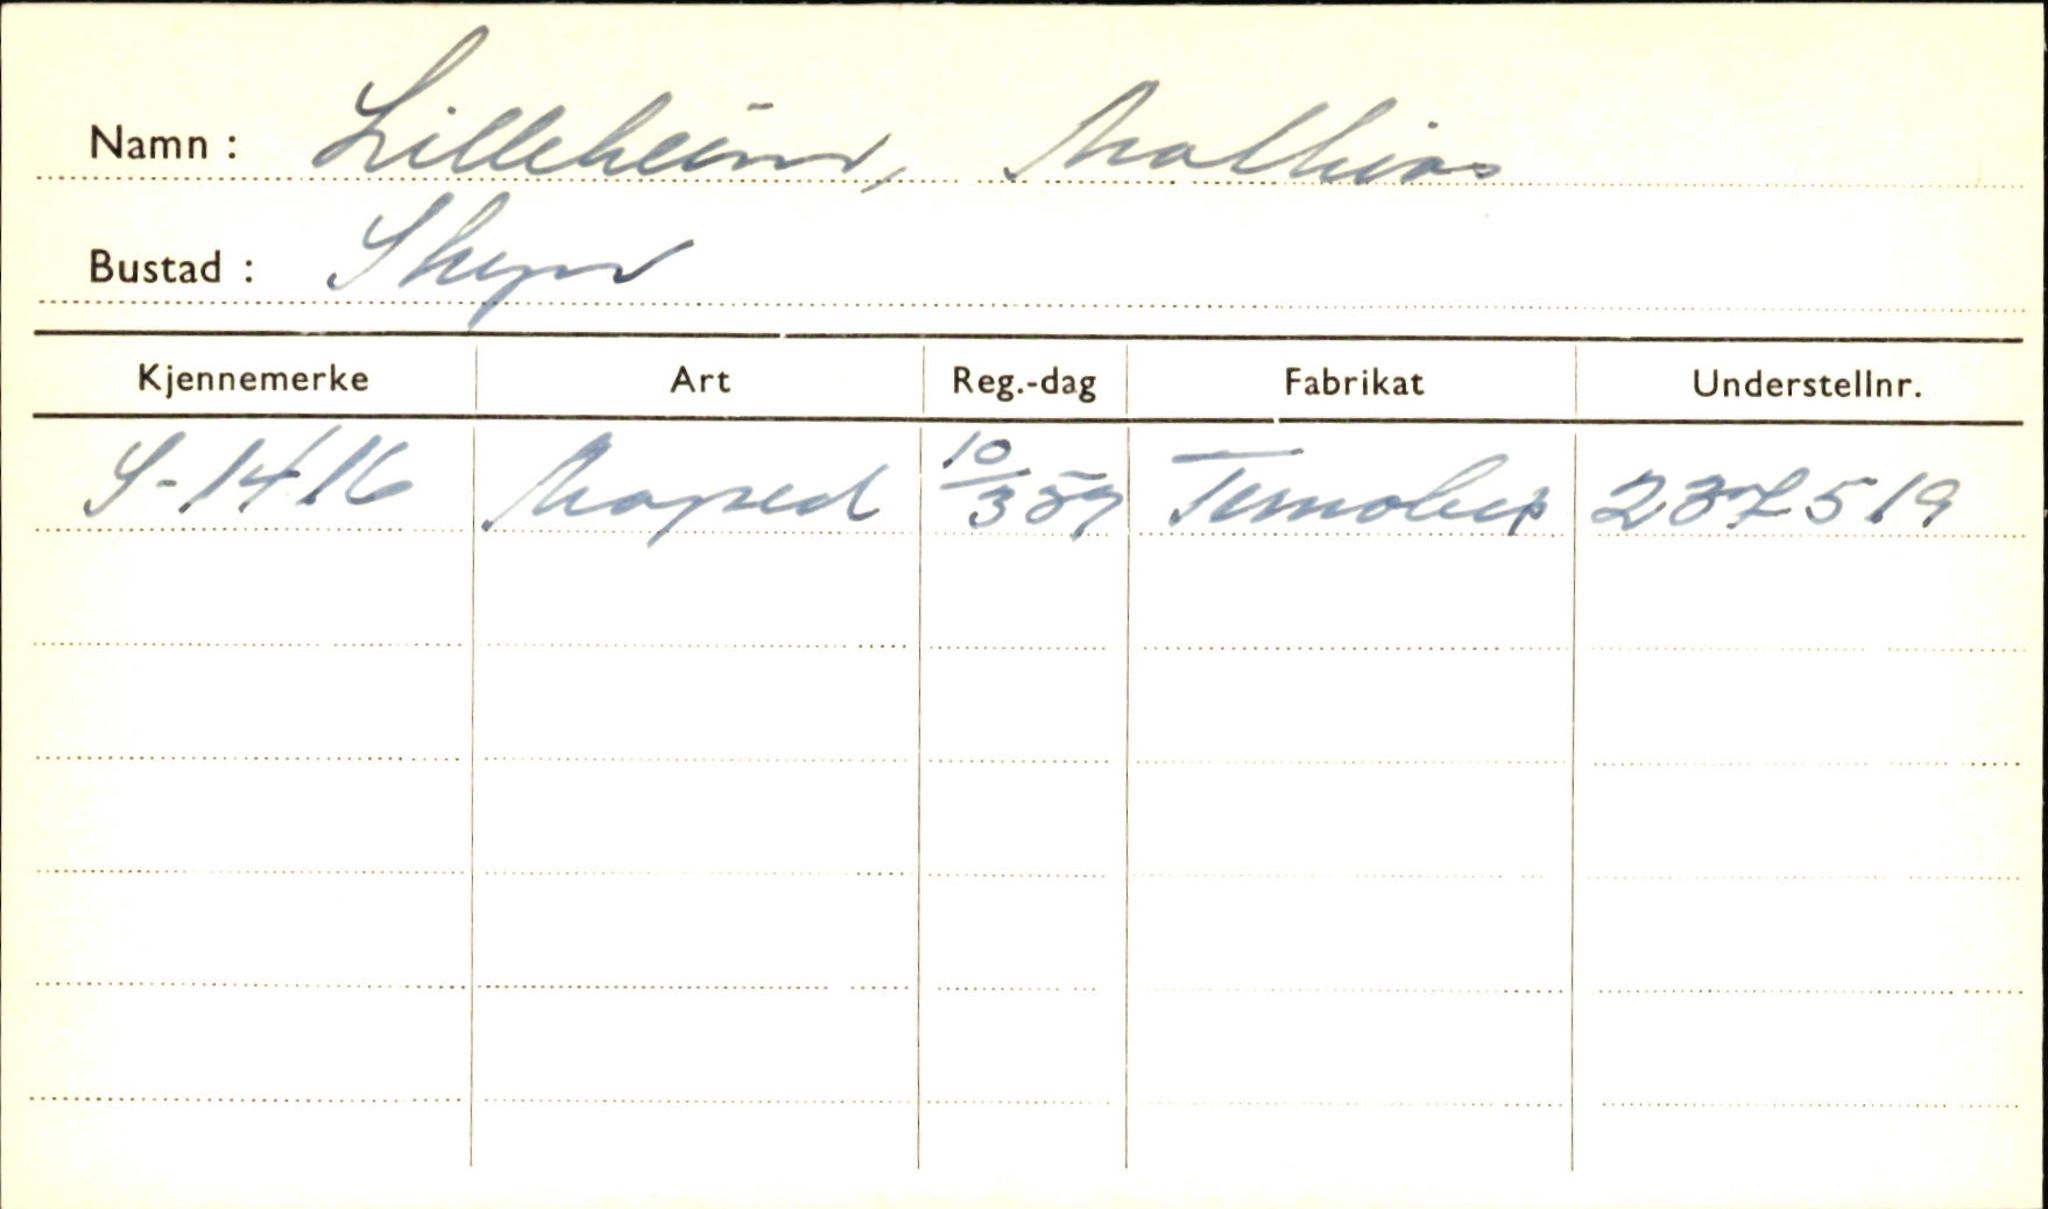 Namn : Lilleheim, Mathias
Bustad : Skei
Kjennemerke Art Reg.-dag Fabrikat Understellnr.
S-1416 Moped 10/3 59 Tempo 237519